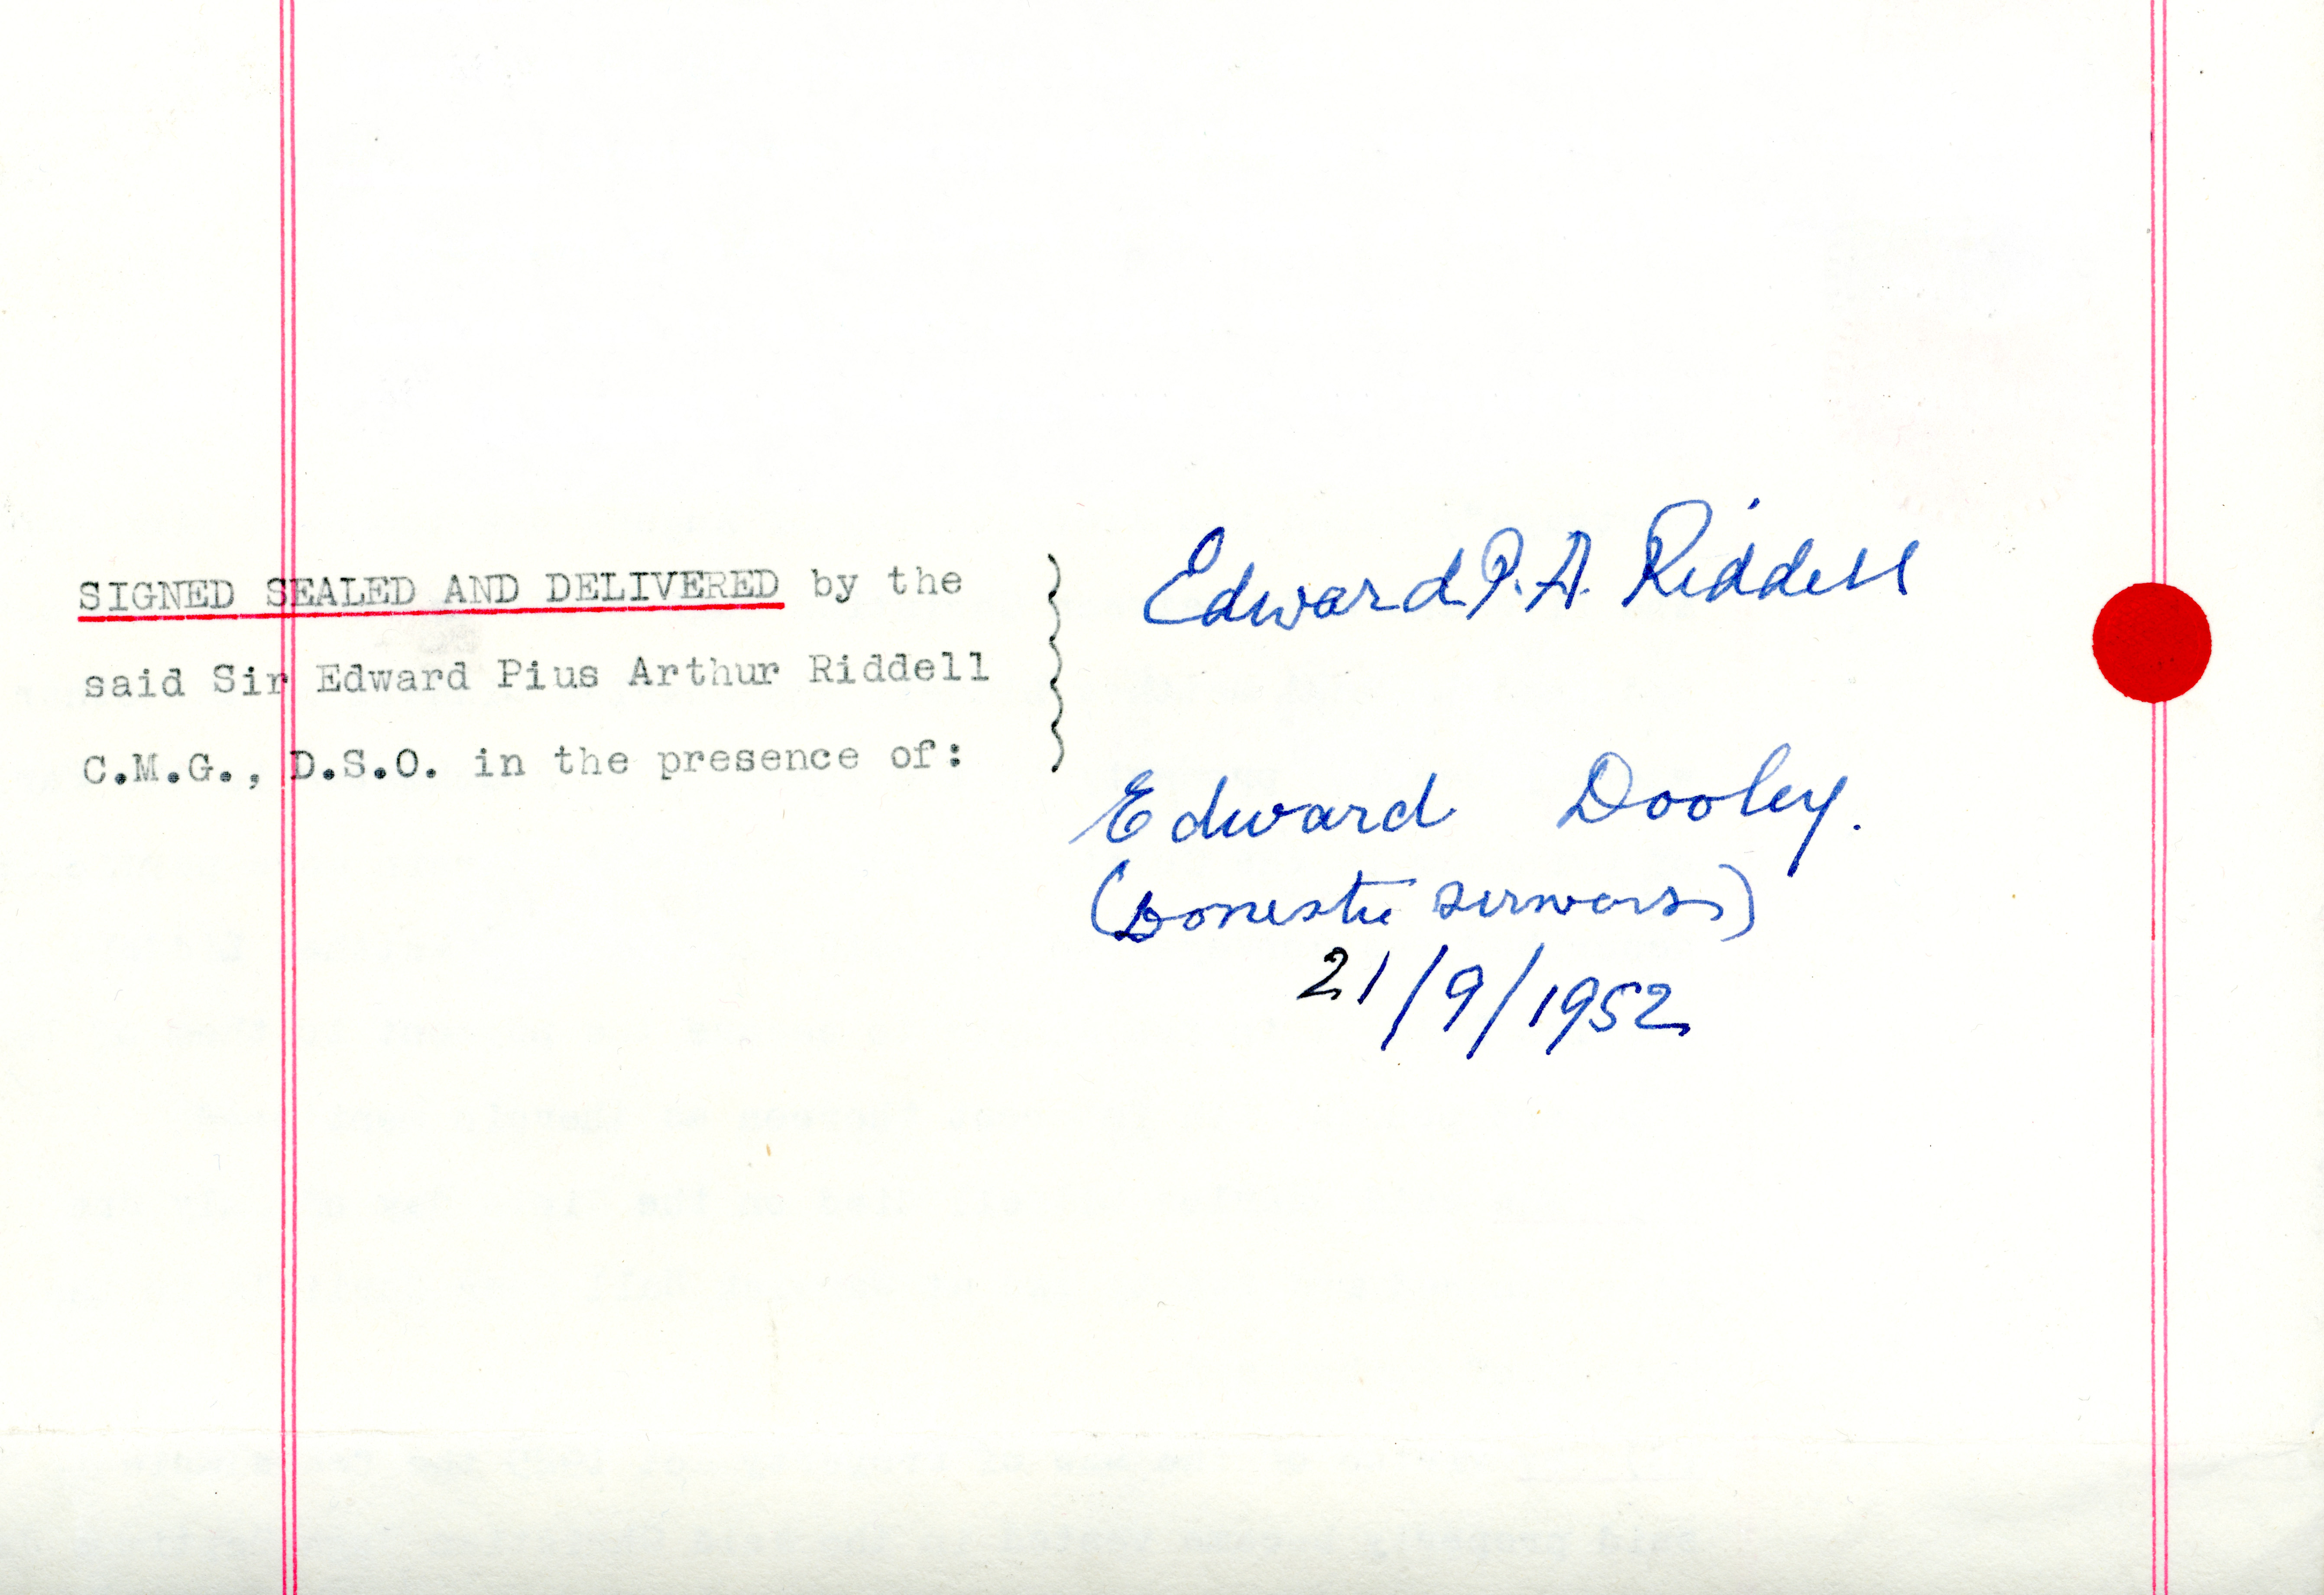 SIGNED SEALED AND DELIVERED by the
said Sir Edward Pius Arthur Riddell
C.M.G., D.S.O. in the presence of:
Edward P.A. Riddell
Edward Dooley.
(Domestic
21/9/1952